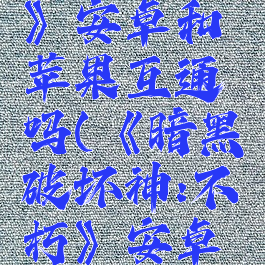 》安卓和
苹果互通
吗(《暗黑
破坏神:不
朽》安卓